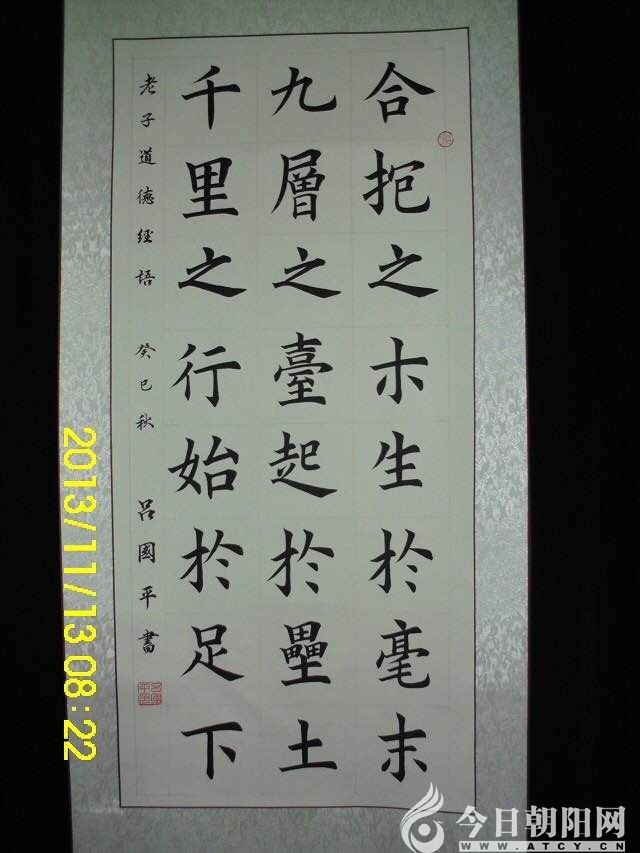 合抱之木生於毫末
九層之臺起於壘土
千里之行始於足下
老子道德經語 癸巳秋 呂國平書
2013/11/13 08:22
今日朝阳网
WWW.ATCY.CN